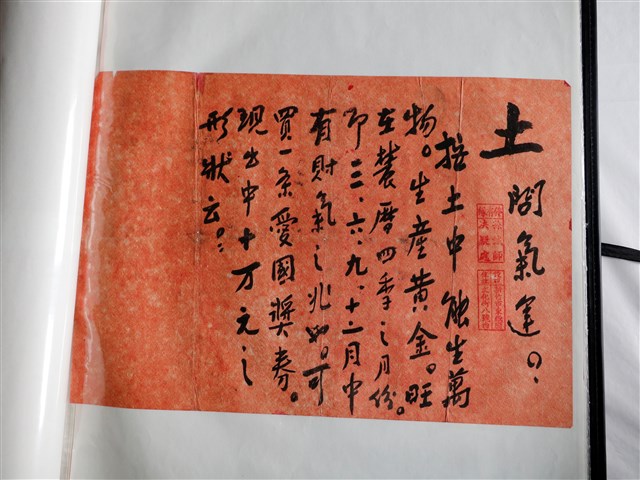 土 問氣運。:
按土中能生萬
物。生産黄金。旺
在農曆四季之月份。
即三、六、九、十二月中
有財氣之兆如。可
買一条愛國獎券。
現出中十万元之
形狀云。: